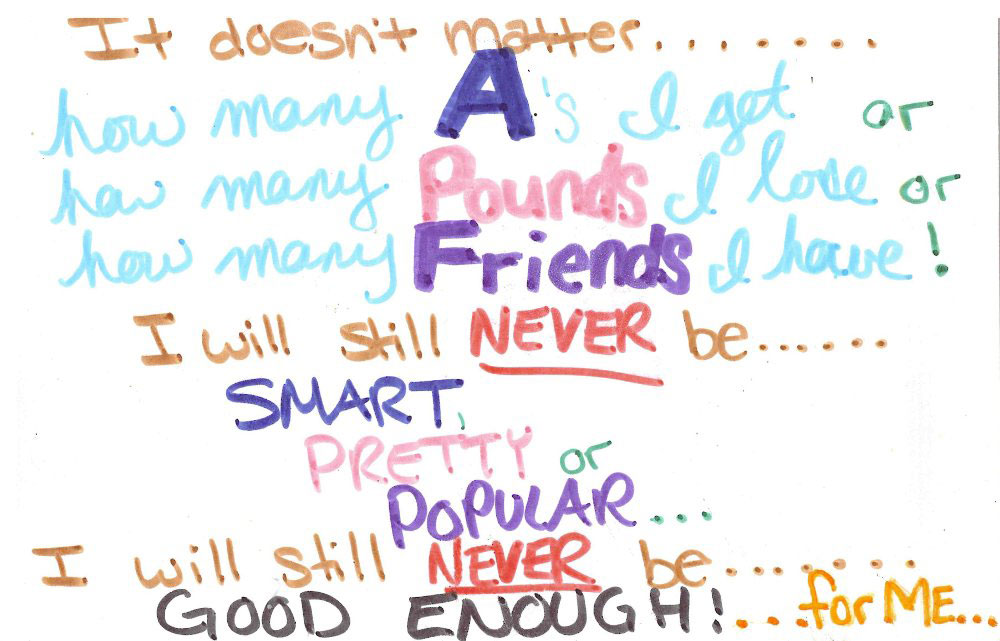 It doesn't matter........
how many A's I get or
how many Pounds I lose or
how many Friends I have!
I will still NEVER be......
SMART,
PRETTY or
POPULAR...
I will still NEVER be.......
GOOD ENOUGH!...for ME...